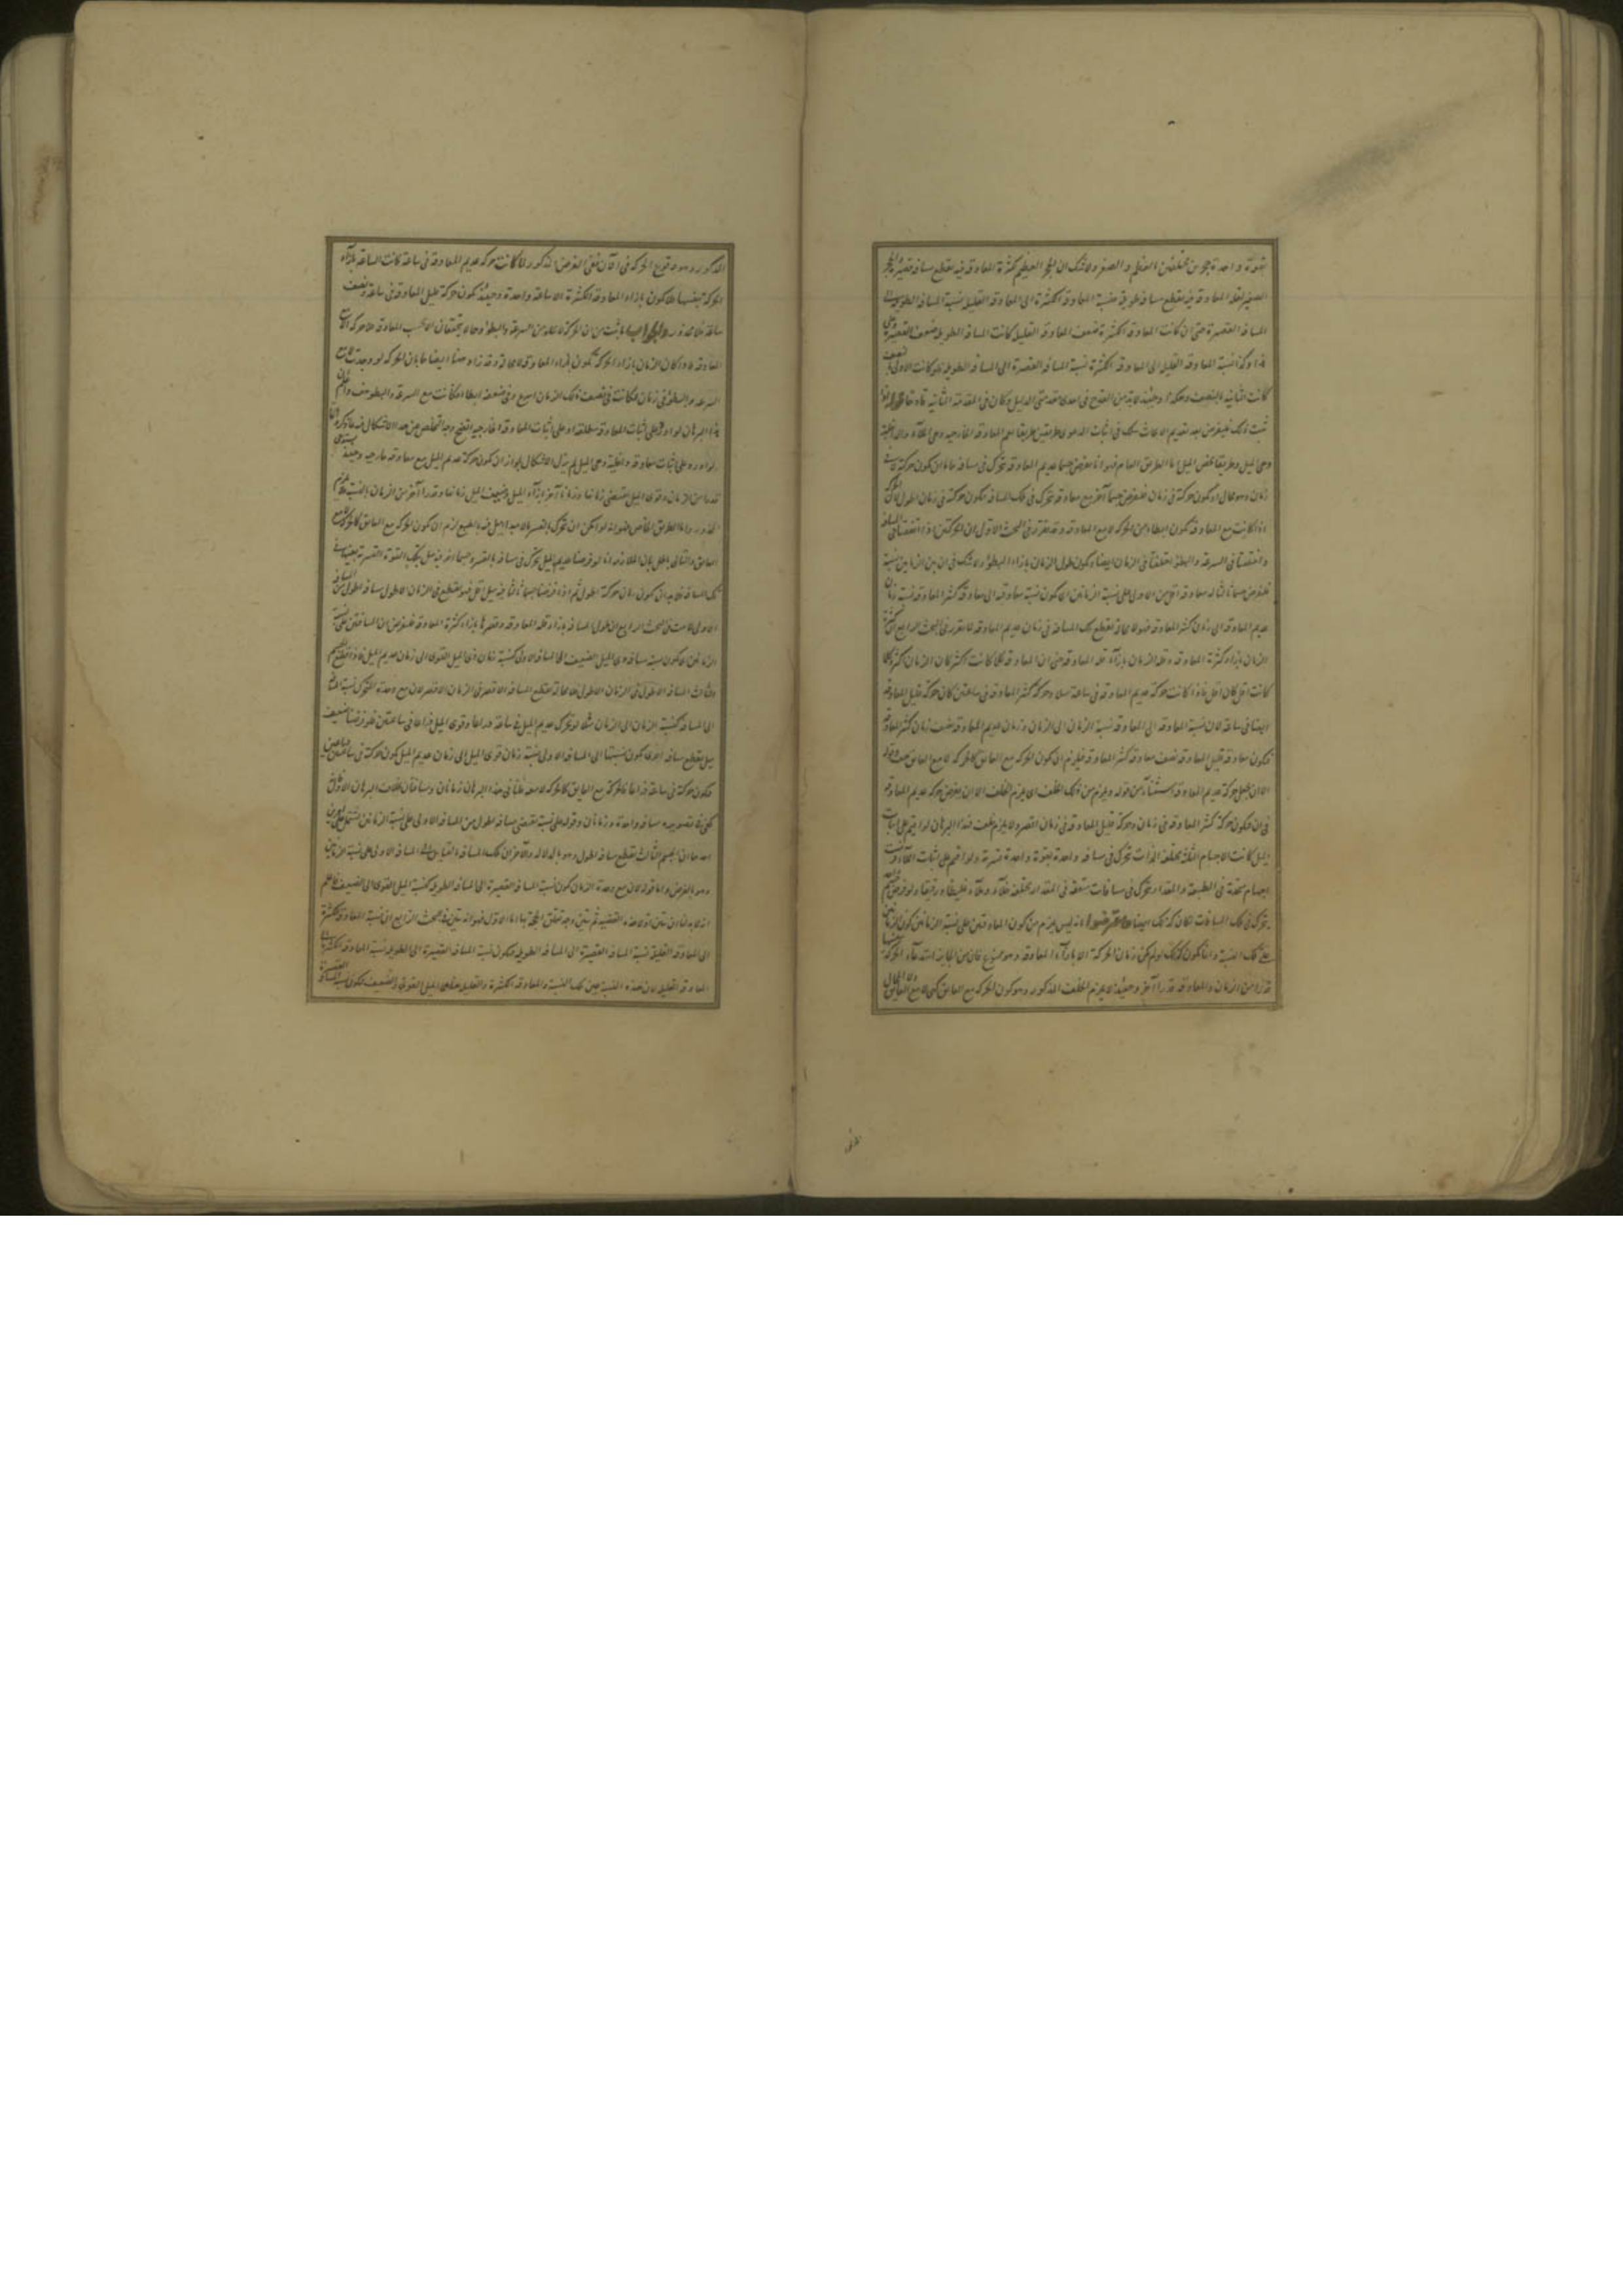 بقوة واحدة حجرين مختلفين العظم والصغر ولا شك ان الحجر العظيم لكثرة المعاوقة فيه يقطع مسافة قصيرة والحجر
الصغير لقلة المعاوقة فيه يقطع مسافة طويلة فنسبة المعاوقة الكثيرة الى المعاوقة القليلة نسبة المسافة الطويلة الى
المسافة القصيرة حتى ان كانت المعاوقة الكثيرة ضعف المعاوقة القليلة كانت المسافة الطويلة ضعف القصيرة
وكذا نسبة المعاوقة القليلة الى المعاوقة الكثيرة نسبة المسافة القصيرة الى المسافة الطويلة فلو كانت الاولى نصف
كانت الثانية بالنصف وهكذا وحينئذ لا بد من القدح في احدى مقدمتي الدليل وكان في المقدمة الثانية
ثبت ذلك فليفرض بعد تقديم الابحاث لك في اثبات الدعوى طريقين طريقا يعم المعاوقة الخارجية وهي الملاء والداخلية
وهي الميل وطريقا يخص الميل اما الطريق العام فهو انا نفرض جسما عديم المعاوقة تحرك في مسافة فاما ان يكون حركته لا في
زمان وهو محال او يكون حركته في زمان فلنفرض جسما آخر مع معاوقة تحرك في تلك المسافة فيكون حركته في زمان اطول لان الحركة
اذا كانت مع المعاوقة تكون ابطاء من الحركة لا مع المعاوقة وقد تقرر في البحث الاول ان الحركتين اذا اتفقتا في المسافة
واختلفتا في السرعة والبطؤ اختلفتا في الزمان ايضا ويكون طول الزمان بازاء البطؤ ولا شك في ان بين الزمانين نسبة
فلنفرض جسما ثالثا له معاوقة اقل من الاولى على نسبة الزمانين اى يكون نسبة معاوقته الى معاوقة كثير المعاوقة نسبة زمان
عديم المعاوقة الى زمان كثير المعاوقة فهو لا محالة يقطع تلك المسافة في زمان عديم المعاوقة لما تقرر في البحث الرابع ان كثرة
الزمان بازاء كثرة المعاوقة وقلة الزمان بازاء قلة المعاوقة حتى ان المعاوقة كلما كانت اكثر كان الزمان اكثر وكلما
كانت اقل كان اقل فاذا كانت حركة عديم المعاوقة في ساعة مثلا وحركة كثير المعاوقة في ساعتين كان حركة قليل المعاوقة
ايضا في ساعة لان نسبة المعاوقة الى المعاوقة نسبة الزمان الى الزمان وزمان عديم المعاوقة نصف زمان كثير المعاوقة
فيكون معاوقة قليل المعاوقة نصف معاوقة كثير المعاوقة فيلزم ان يكون الحركة مع العائق كالحركة لا مع العائق هف وقوله
الا ان يجعل حركة عديم المعاوقة استثناء من قوله ويلزم من ذلك الخلف اى يلزم الخلف الا ان يفرض حركة عديم المعاوقة
في ان فيكون حركة كثير المعاوقة في زمان وحركة قليل المعاوقة في زمان اقصر ولا يلزم خلف فهذا البرهان لو اقيم على اثبات
الميل كانت الاجسام الثلثة مختلفة الذات تتحرك في مسافة واحدة بقوة واحدة قسرية ولو اقيم على اثبات الملاء فرضت
اجسام متحدة في الطبيعة والمقدار يتحرك في مسافات متفقة في المقدار مختلفة خلاء وملاء غليظا ورقيقا ولو فرض جسم واحد
يتحرك في تلك المسافات لكان كذلك ايضا لانه ليس يلزم من كون المعاوقتين على نسبة الزمانين كون الزمانين
على تلك النسبة وانما يكون كذلك لو لم يكن زمان الحركة الا بازاء المعاوقة وهو ممنوع فان من الجايز استدعاء الحركة بنفسها
قدرا من الزمان والمعاوقة قدرا آخر وحينئذ لا يلزم الخلف المذكور وهو كون الحركة مع العائق كهي لا مع العائق
المذكور وهو وقوع الحركة في الآن ففي الفرض المذكور لما كانت حركة عديم المعاوقة في ساعة كانت الساعة بازاء
الحركة بنفسها فلا يكون بازاء المعاوقة الكثيرة الا ساعة واحدة وحينئذ يكون حركة قليل المعاوقة في ساعة ونصف
ساعة فلا محذور والجواب ما ثبت من ان الحركة لا تخلو من السرعة والبطؤ وهما لا يتحققان الا بحسب المعاوقة فلا حركة الا مع
المعاوقة فلو كان الزمان بازاء الحركة يكون بازاء المعاوقة لا محالة وقد زاد هنا ايضا بان الحركة لو وجدت لا مع
السرعة والبطؤ في زمان لكانت في نصف ذلك الزمان اسرع وفي ضعفه ابطا فكانت مع السرعة والبطؤ هف واعلم ان
هذا البرهان لو اورد على اثبات المعاوقة مطلقا او على اثبات المعاوقة الخارجية اتضح وجه التخلص عن هذا الاشكال
لو اورد على اثبات معاوقة داخلية وهي الميل لم يزل الاشكال لجواز ان يكون حركة عديم الميل مع معاوقة خارجية وحينئذ يستدعي
قدرا من الزمان وقوى الميل يقتضي زمانها وزمانا آخر بازاء الميل وضعيف الميل زمانها وقدرا آخر من الزمان بالنسبة فلا يلزم
المحذور واما الطريق الخاص فهو انه لو امكن ان يتحرك بالقسر ما لا مبدأ ميل فيه بالطبع لزم ان يكون الحركة مع العائق كالحركة لا مع
العائق والتالي باطل بيان الملازمة انا لو فرضنا عديم الميل يتحرك في مسافة بالقسر وجسما آخر فيه ميل يتحرك بتلك القوة القسرية بعينها في
تلك المسافة فلا بد ان يكون زمان حركته اطول ثم اذا فرضنا جسما ثالثا فيه ميل اقل فهو يقطع في الزمان الاطول مسافة اطول من المسافة
الاولى لما مر في البحث الرابع ان طول المسافة بازاء قلة المعاوقة وقصرها بازاء كثرة المعاوقة فلنفرض ان المسافتين على نسبة
الزمانين اى يكون نسبة مسافة ذى الميل الضعيف الى المسافة الاولى كنسبة زمان ذى الميل القوى الى زمان عديم الميل فاذا قطع الجسم
الثالث المسافة الاطول في الزمان الاطول فلا محالة يقطع المسافة الاقصر في الزمان الاقصر لان مع وحدة المتحرك نسبة المسافة
الى المسافة كنسبة الزمان الى الزمان مثلا لو تحرك عديم الميل في ساعة ذراعا وقوى الميل ذراعا في ساعتين فلو فرضنا ضعيف
ميل يقطع مسافة اخرى يكون نسبتها الى المسافة الاولى نسبة زمان قوى الميل الى زمان عديم الميل يكون حركته في ساعتين ذراعين
فيكون حركته في ساعة ذراعا فالحركة مع العائق كالحركة لا معه فلنا في هذا البرهان زمانان ومسافتان بخلاف البرهان الاول اذ
يكفي في تصويره مسافة واحدة وزمانان وقوله على نسبة يقتضي مسافة اطول من المسافة الاولى على نسبة الزمانين يشتمل على دعويين
احدهما ان الجسم الثالث يقطع مسافة اطول وهو ما له والآخر ان تلك المسافة بالقياس الى المسافة الاولى على نسبة الزمانين
وهو بالفرض واما قوله لان مع وحدة الزمان يكون نسبة المسافة القصيرة الى المسافة الطويلة كنسبة الميل القوى الى الضعيف فاعلم
انه لا بد لنا ان نبين اولا هذه القضية ثم نبين وجه تعلق الحجة بها اما الاول فهو انه تبين في البحث الرابع ان نسبة المعاوقة الكثيرة
الى المعاوقة القليلة نسبة المسافة القصيرة الى المسافة الطويلة فيكون نسبة المسافة القصيرة الى الطويلة نسبة المعاوقة الكثيرة الى
المعاوقة القليلة لان هذه النسبة عين تلك النسبة والمعاوقة الكثيرة والقليلة هما الميل القوى والضعيف فيكون نسبة المسافة القصيرة